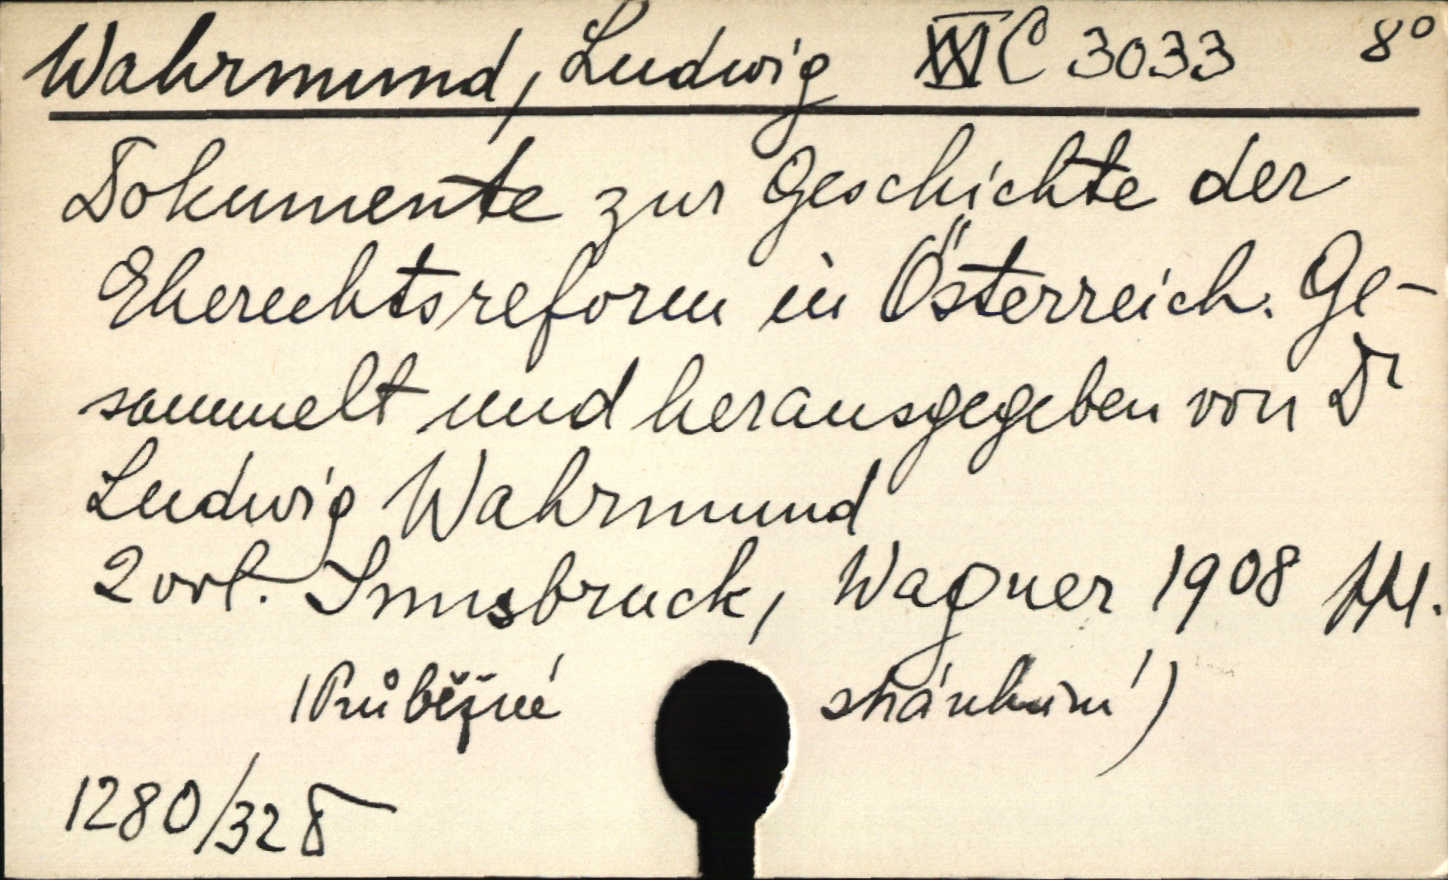 Wahrmund, Ludwig XVI C 3033 8°
Dokumente zur Geschichte der
Eherechtsreform in Österreich. Ge-
sammelt und herausgegeben von Dr
Ludwig Wahrmund
2 vol. Innsbruck, Wagner 1908
(Průběžné stránkování)
1280/32